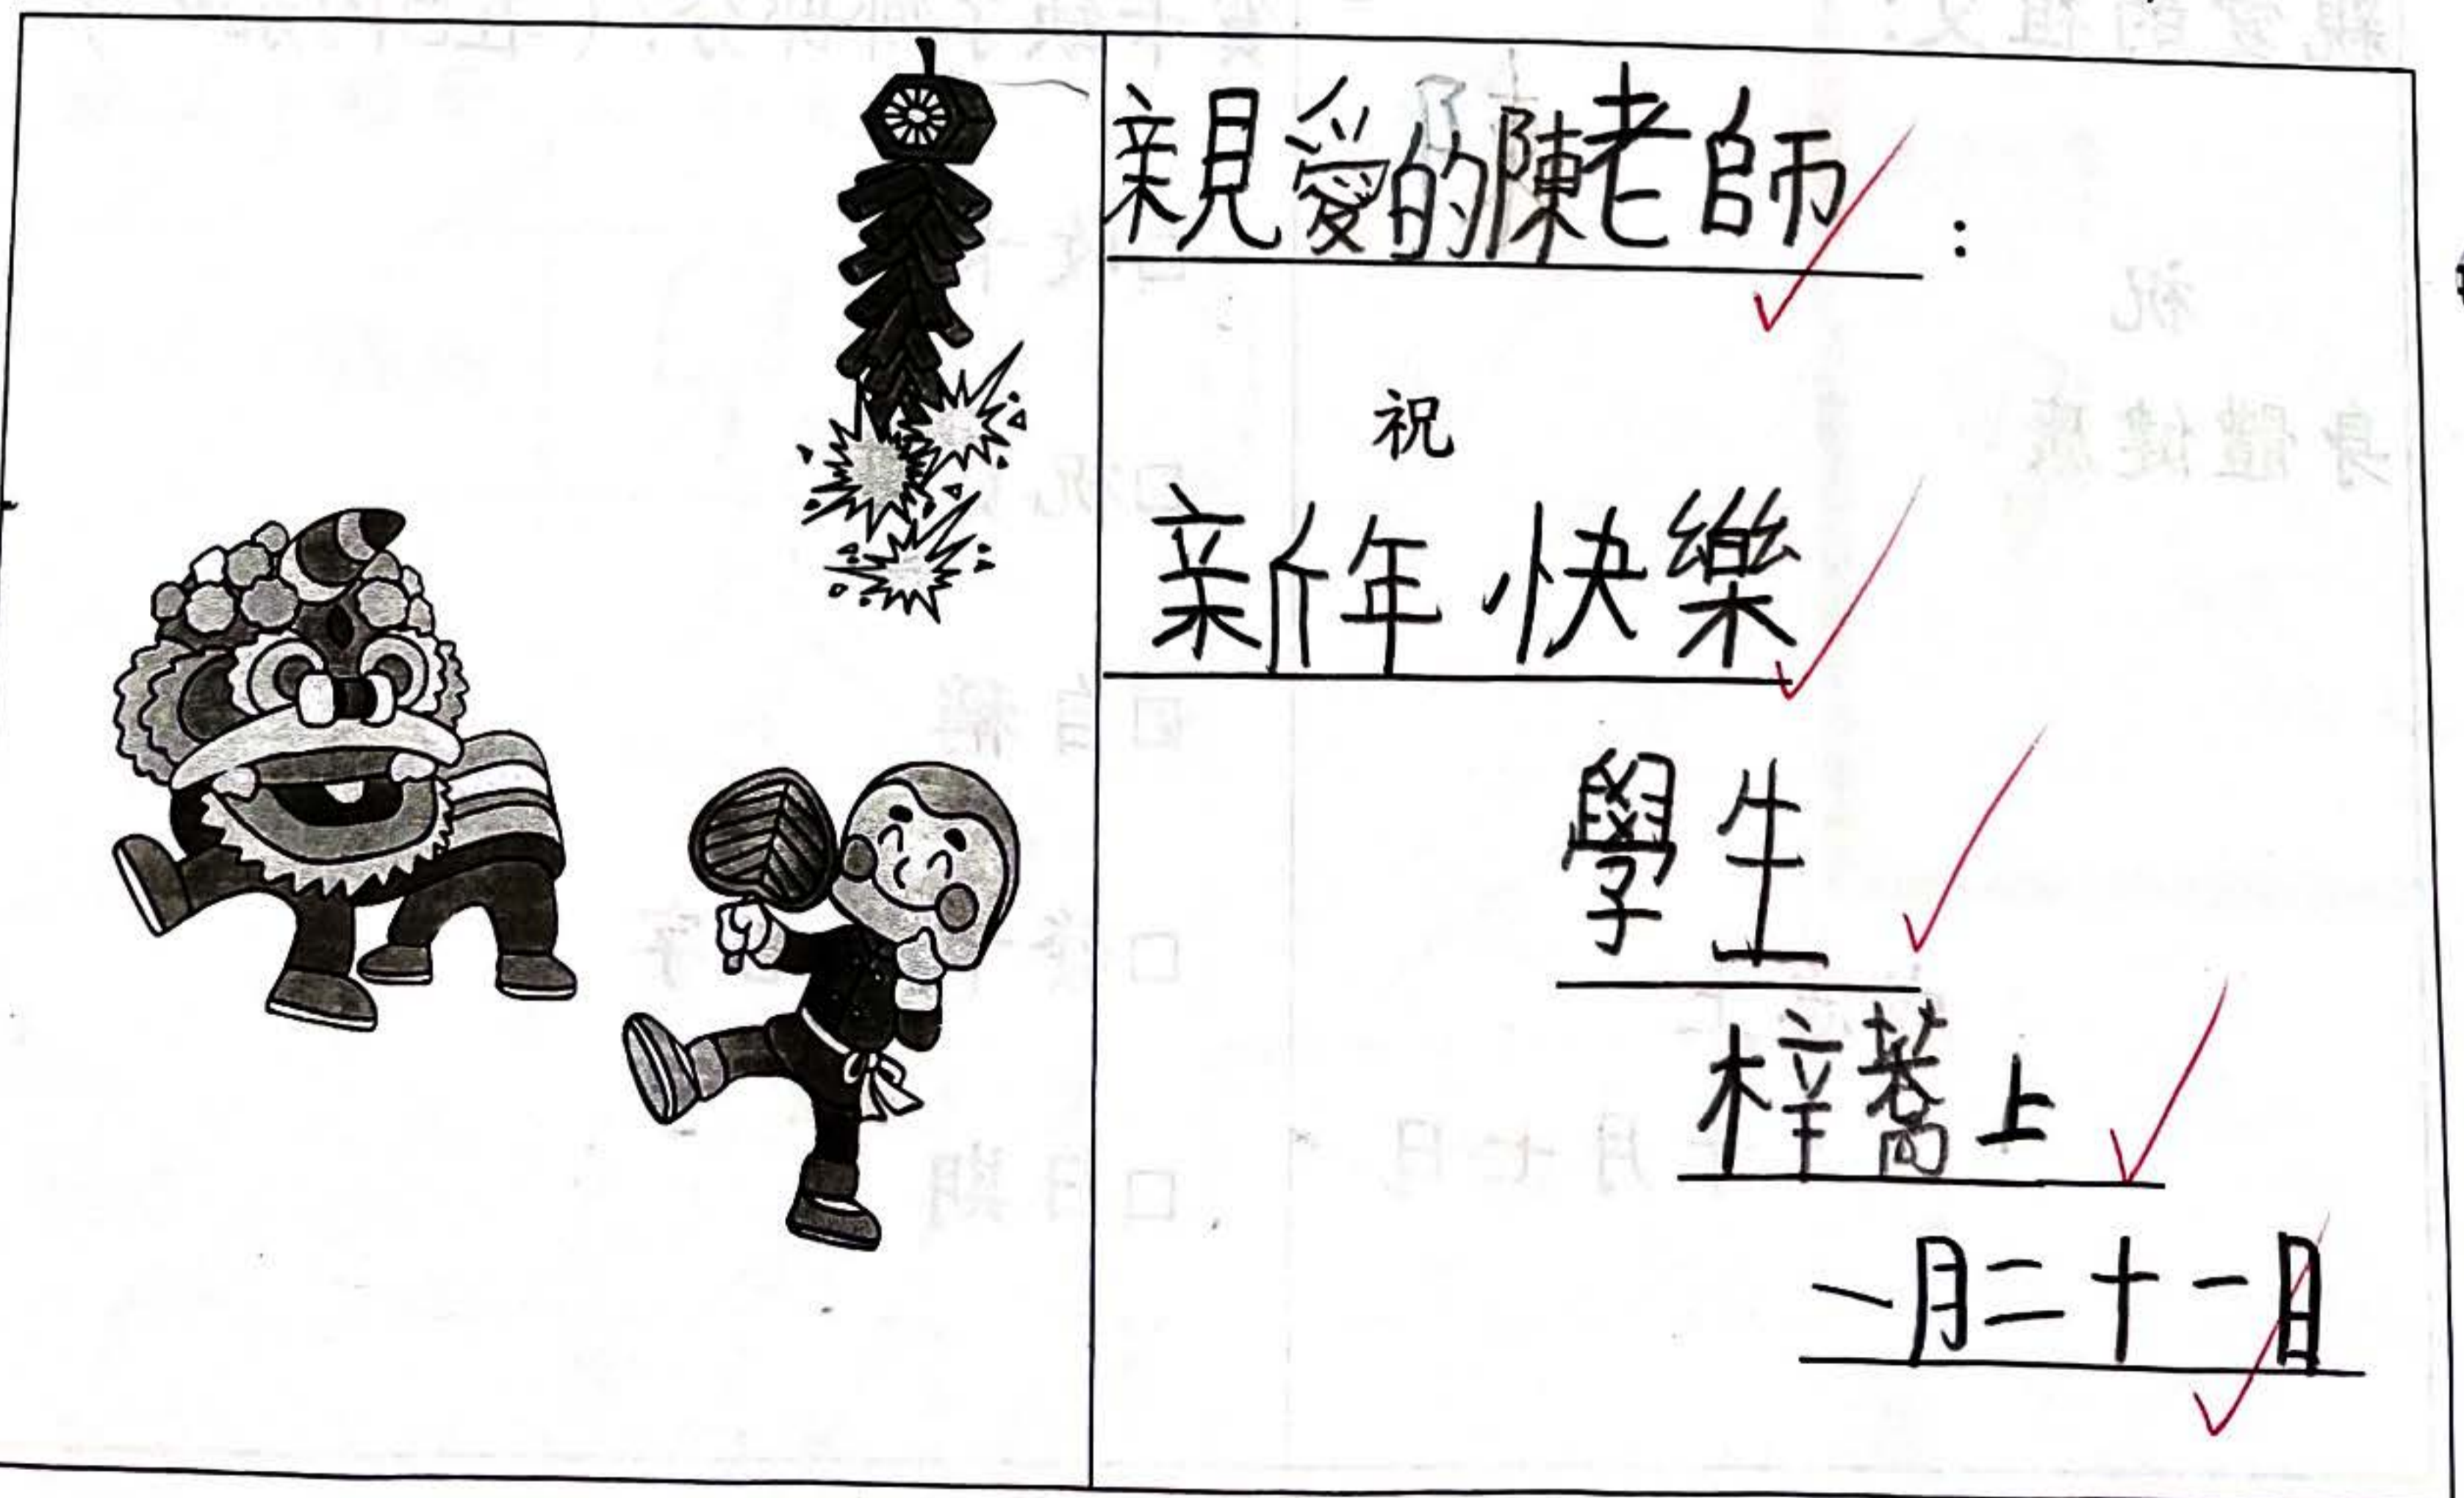 親愛的陳老師：
祝
新年快樂
學生
梓蕎上
一月二十一日